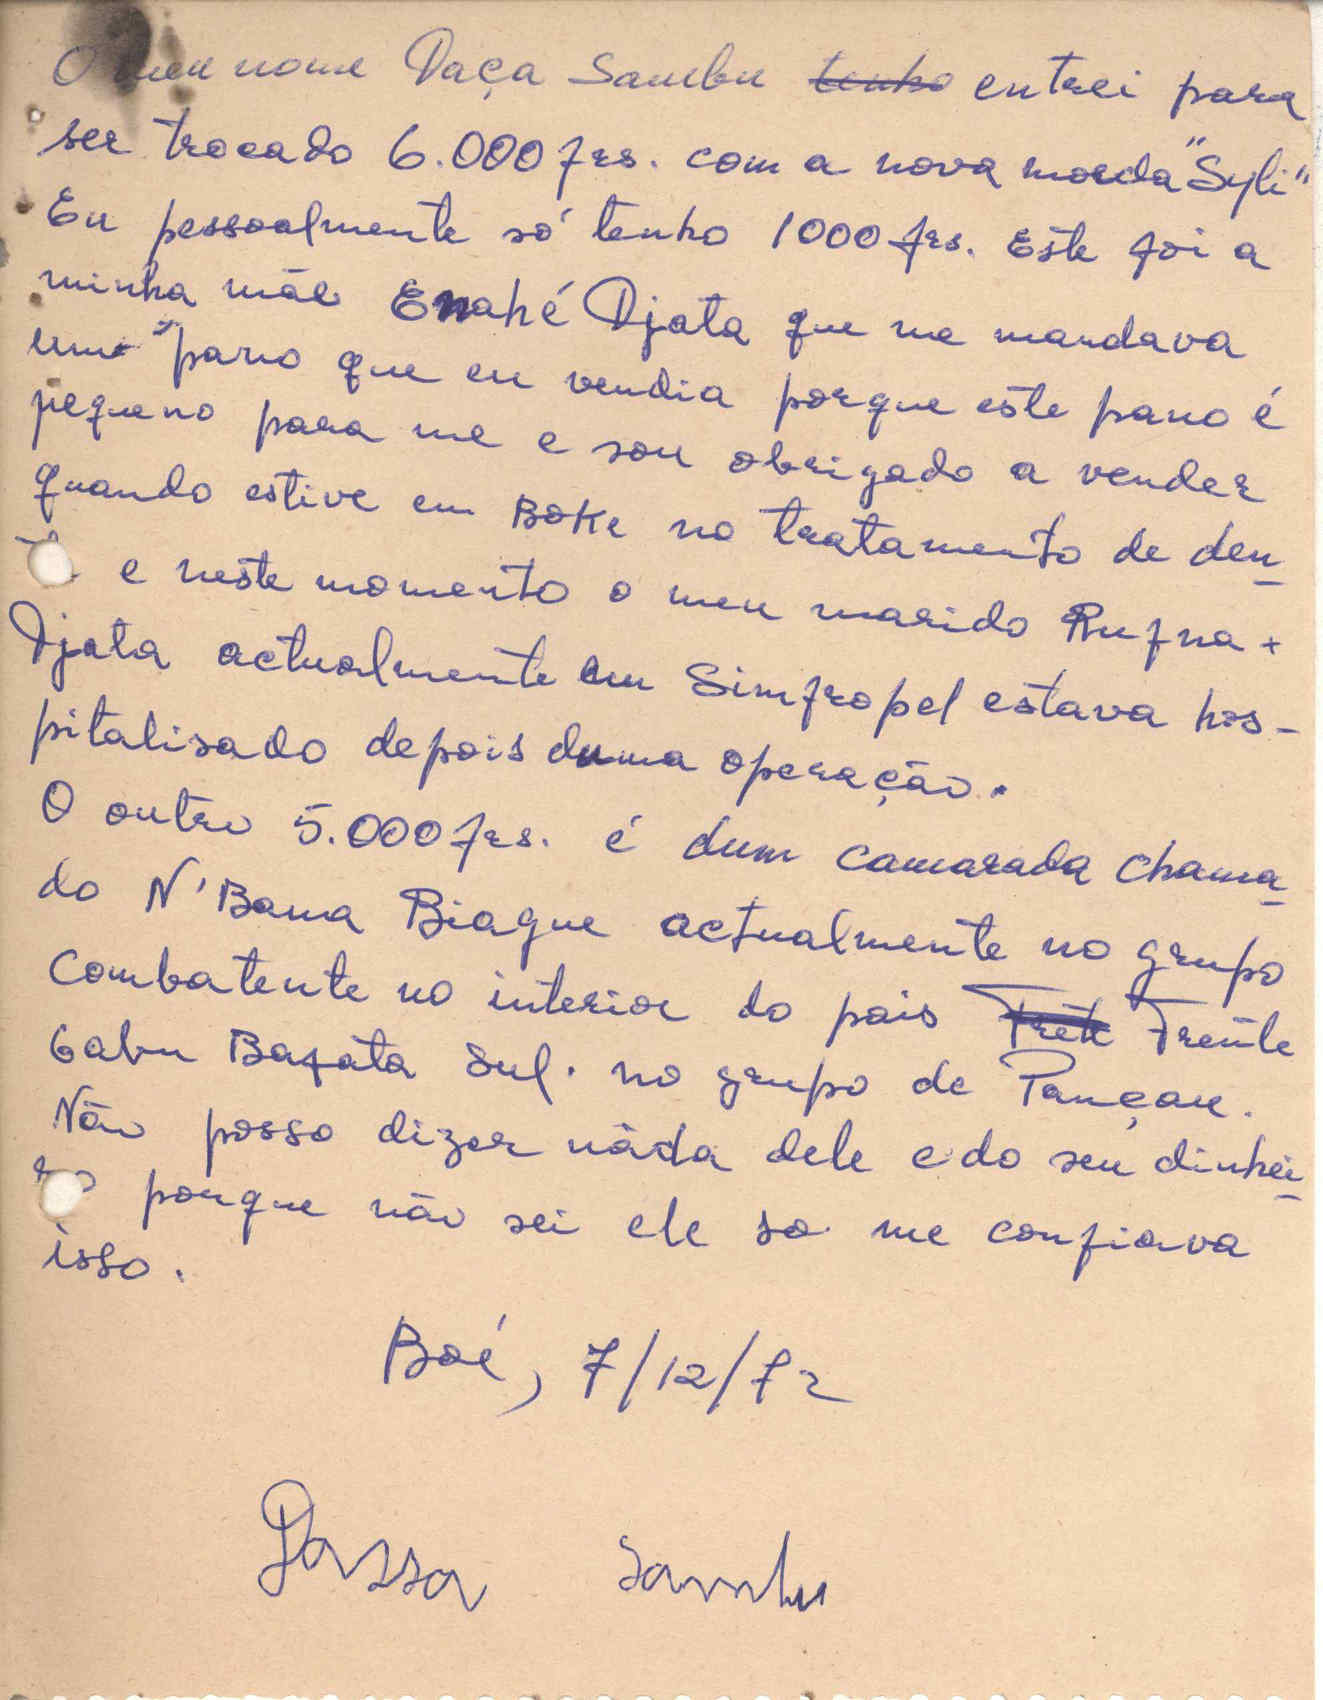 O meu nome Daça Sambu tenho entrei para
ser trocado 6.000 frs. com a nova moeda "Syli"
Eu pessoalmente só tenho 1000 frs. Este foi a
minha mãe Enahé Djata que me mandava
um pano que eu vendia porque este pano é
pequeno para me e sou obrigado a vender
quando estive em Boke no tratamento de den-
e neste momento o meu marido Rufna
Djata actualmente em Simfropel estava hos-
pitalisado depois duma operação.
O outro 5.000 frs. é dum camarada chama-
do N'Bana Biague actualmente no grupo
combatente no interior do pais Frente
Gabu Bafata Sul. no grupo de Pançau.
Não posso dizer náda dele e do seu dinhei-
ro porque não sei ele so me confiava
isso.
Boé, 7/12/72
Dassa Sambu